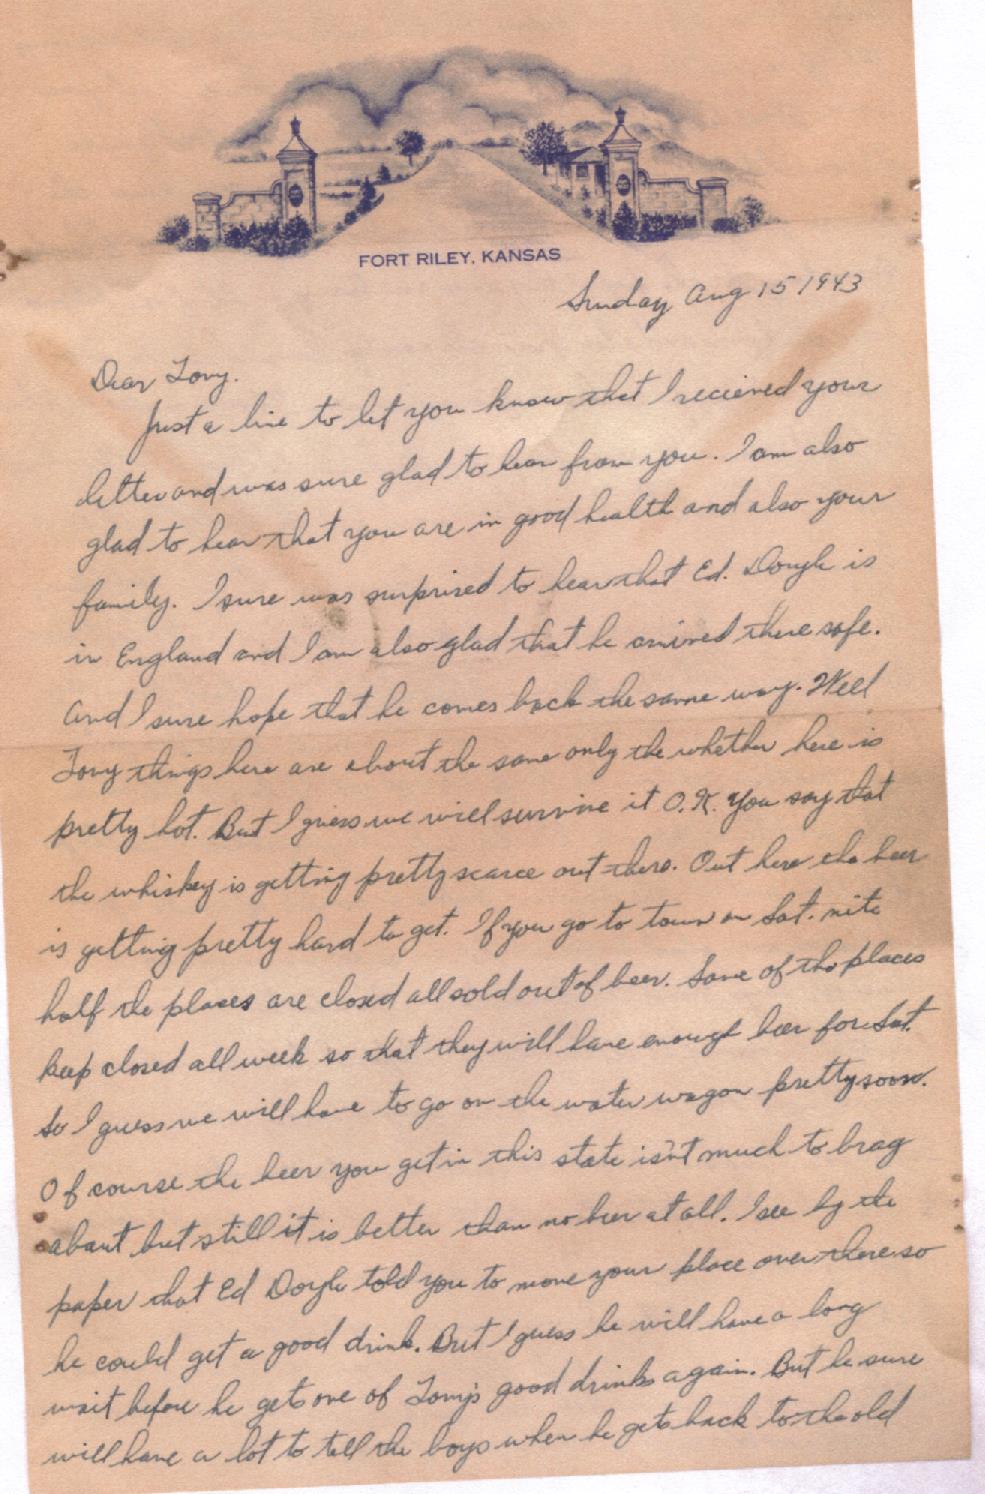 FORT RILEY, KANSAS
Sunday Aug 15 1943
Dear Tony.
Just a line to let you know that I recieved your
letter and was sure glad to hear from you. I am also
glad to hear that you are in good health and also your
family. I sure was surprised to hear that Ed. Doyle is
in England and I am also glad that he arrived there safe.
and I sure hope that he comes back the same way. Well
Tony things here are about the same only the whether here is
pretty hot. But I guess we will survive it O.K. You say that
the whiskey is getting pretty scarce out there. Out here the beer
is getting pretty hard to get. If you go to town on Sat. nite
half the places are closed all sold out of beer. Some of the places
keep closed all week so that they will have enough beer for Sat.
So I guess we will have to go on the water wagon pretty soon.
Of course the beer you get in this state isn't much to brag
about but still it is better than no beer at all. I see by the
paper that Ed Doyle told you to move your place over there so
he could get a good drink. But I guess he will have a long
wait before he gets one of Tony's good drinks again. But he sure
will have a lot to tell the boys when he gets back to the old